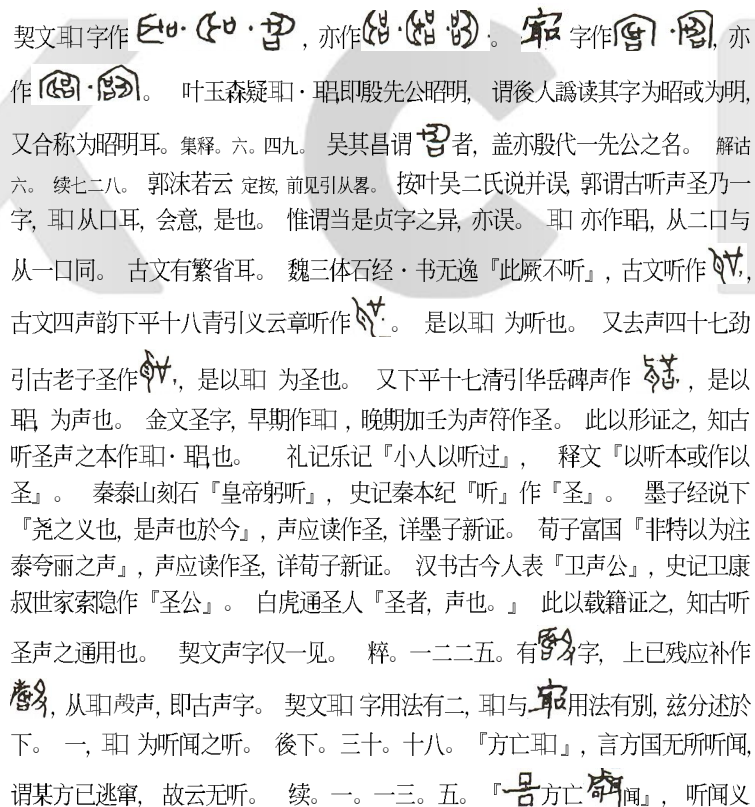 契文𦔻字作 · · , 亦作 · · 。 字作 · , 亦
作 · 。 叶玉森疑𦔻·聑即殷先公昭明, 谓後人譌读其字为昭或为明,
又合称为昭明耳。集释。六。四九。 吴其昌谓 者, 盖亦殷代一先公之名。 解诂
六。 续七二八。 郭沫若云 定按, 前见引从畧。 按叶吴二氏说并误, 郭谓古听声圣乃一
字, 从口耳, 会意, 是也。 惟谓当是贞字之异, 亦误。 亦作 , 从二口与
从一口同。 古文有繁省耳。 魏三体石经·书无逸『此厥不听』, 古文听作 ,
古文四声韵下平十八青引义云章听作 。 是以 为听也。 又去声四十七劲
引古老子圣作 , 是以 为圣也。 又下平十七清引华岳碑声作 , 是以
 为声也。 金文圣字, 早期作 , 晚期加壬为声符作圣。 此以形证之, 知古
听圣声之本作 · 也。 礼记乐记『小人以听过』, 释文『以听本或作以
圣』。 秦泰山刻石『皇帝躬听』, 史记秦本纪『听』作『圣』。 墨子经说下
『尧之义也, 是声也於今』, 声应读作圣, 详墨子新证。 荀子富国『非特以为注
泰夸丽之声』, 声应读作圣, 详荀子新证。 汉书古今人表『卫声公』, 史记卫康
叔世家索隐作『圣公』。 白虎通圣人『圣者, 声也。』 此以载籍证之, 知古听
圣声之通用也。 契文声字仅一见。 粹。一二二五。有 字, 上已残应补作
 , 从 殸声, 即古声字。 契文 字用法有二, 与 用法有别, 兹分述於
下。 一, 为听闻之听。 後下。三十。十八。『方亡 』, 言方国无所听闻,
谓某方已逃窜, 故云无听。 续。一。一三。五。『 方亡 闻』, 听闻义